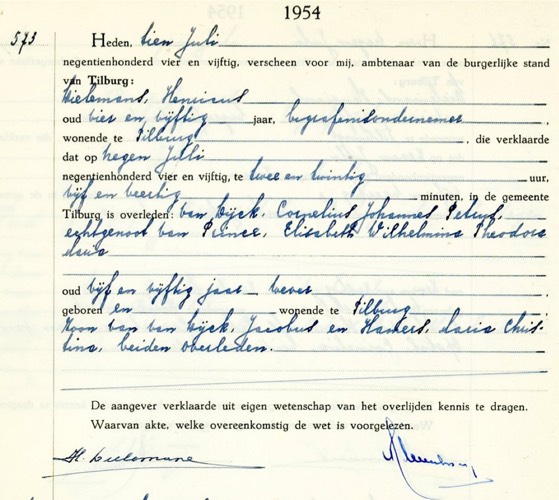 1954
573 Heden, tien Juli
negentienhonderd vier en vijftig, verscheen voor mij, ambtenaar van de burgerlijke stand
van Tilburg:
Wielemans, Henricus
oud vier en vijftig jaar, begrafenisondernemer
wonende te Tilburg, die verklaarde
dat op negen Juli
negentienhonderd vier en vijftig, te twee en twintig uur,
vijf en veertig minuten, in de gemeente
Tilburg is overleden: van Wijck, Cornelius Johannes Petrus,
echtgenoot van Prince, Elisabeth Wilhelmina Theodora
Maria
oud vijf en vijftig jaar wever
geboren en wonende te Tilburg
zoon van van Wijck, Jacobus en Hamers, Maria Chris-
tina, beiden overleden.
De aangever verklaarde uit eigen wetenschap van het overlijden kennis te dragen.
Waarvan akte, welke overeenkomstig de wet is voorgelezen.
H.